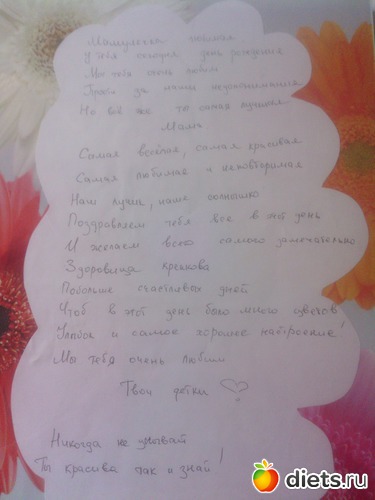 Мамулечка любимая
У тебя сегодня день рождение
Мы тебя очень любим
Прости за наши недопонимания
Но всё же ты самая лучшая
Мама
Самая весёлая, самая красивая
Самая любимая и неповторимая
Наш лучик, наше солнышко
Поздравляем тебя все в этот день
И желаем всего самого замечательно
Здоровица крепкова
Побольше счастливых дней
Чтоб в этот день было много цветов
Улыбок и самое хорошее настроение!
Мы тебя очень любим
Твои детки
Никогда не унывай
Ты красива так и знай!
diets.ru